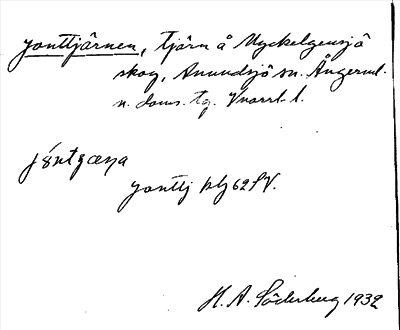 Jonttjärnen, tjärn å Myckelgensjö
skog, Anundsjö sn. Ångerml.
n. doms. tg. Vnorrl. l.
Jonttj blg 62 SV.
H. A. Söderberg 1932